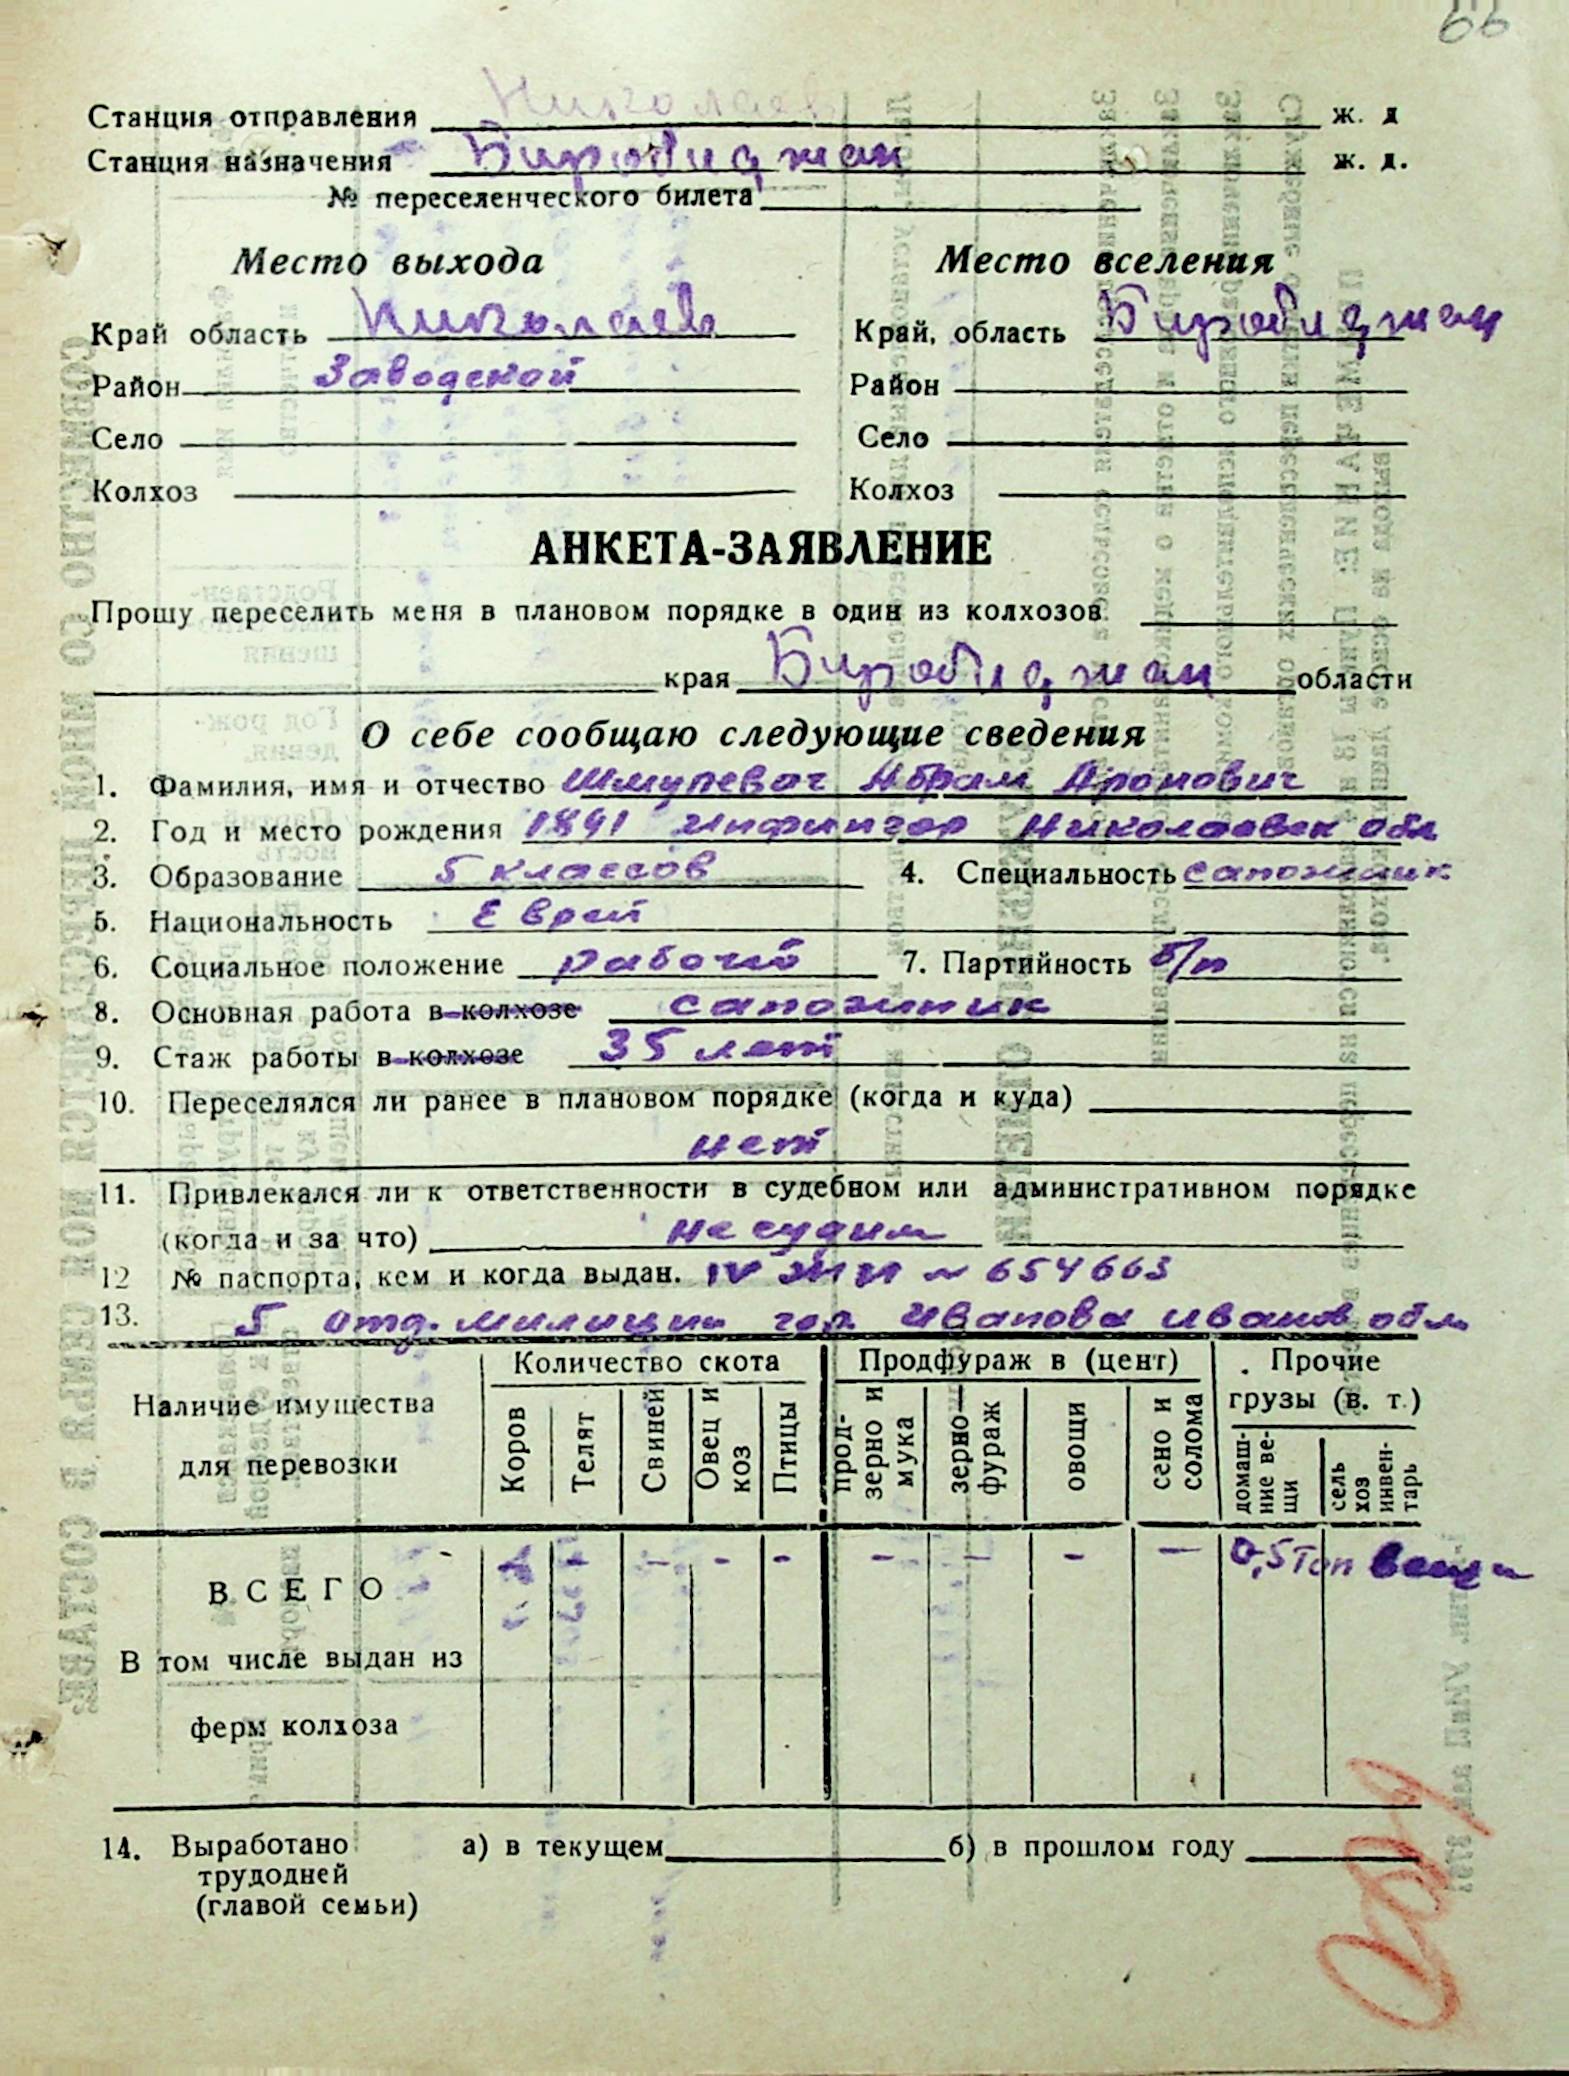 66
Станция отправления Николаев ж. д
Станция назначения Биробиджан ж. д.
№ переселенческого билета
Место выхода
Место вселения
Край область Николаев
Край, область Биробиджан
Район Заводской
Район
Село
Село
Колхоз
Колхоз
АНКЕТА-ЗАЯВЛЕНИЕ
Прошу переселить меня в плановом порядке в один из колхозов
края Биробиджан области
О себе сообщаю следующие сведения
1. Фамилия, имя и отчество Шмулевич Абрам Аронович
2. Год и место рождения 1891 Николаевск обл
3. Образование 5 классов 4. Специальность сапожник
5. Национальность Еврей
6. Социальное положение рабочий 7. Партийность б/п
8. Основная работа в колхозе сапожник
9. Стаж работы в колхозе 35 лет
10. Переселялся ли ранее в плановом порядке (когда и куда)
нет
11. Привлекался ли к ответственности в судебном или административном порядке
(когда и за что) не судим
12 № паспорта, кем и когда выдан. IV № 654663
13. 5 отд. милиции гор. Иванова Иванов обл
Наличие имущества
для перевозки
Количество скота
Продфураж в (цент)
Прочие
грузы (в. т.)
Коров
Телят
Свиней
Овец и
коз
Птицы
прод-
зерно и
мука
зерно-
фураж
овощи
сено и
солома
домаш-
ние ве-
щи
сель
хоз
инвен-
тарь
ВСЕГО - - - - - - - - - 0,5 тон вещи
В том числе выдан из
ферм колхоза
14. Выработано а) в текущем б) в прошлом году
трудодней
(главой семьи)